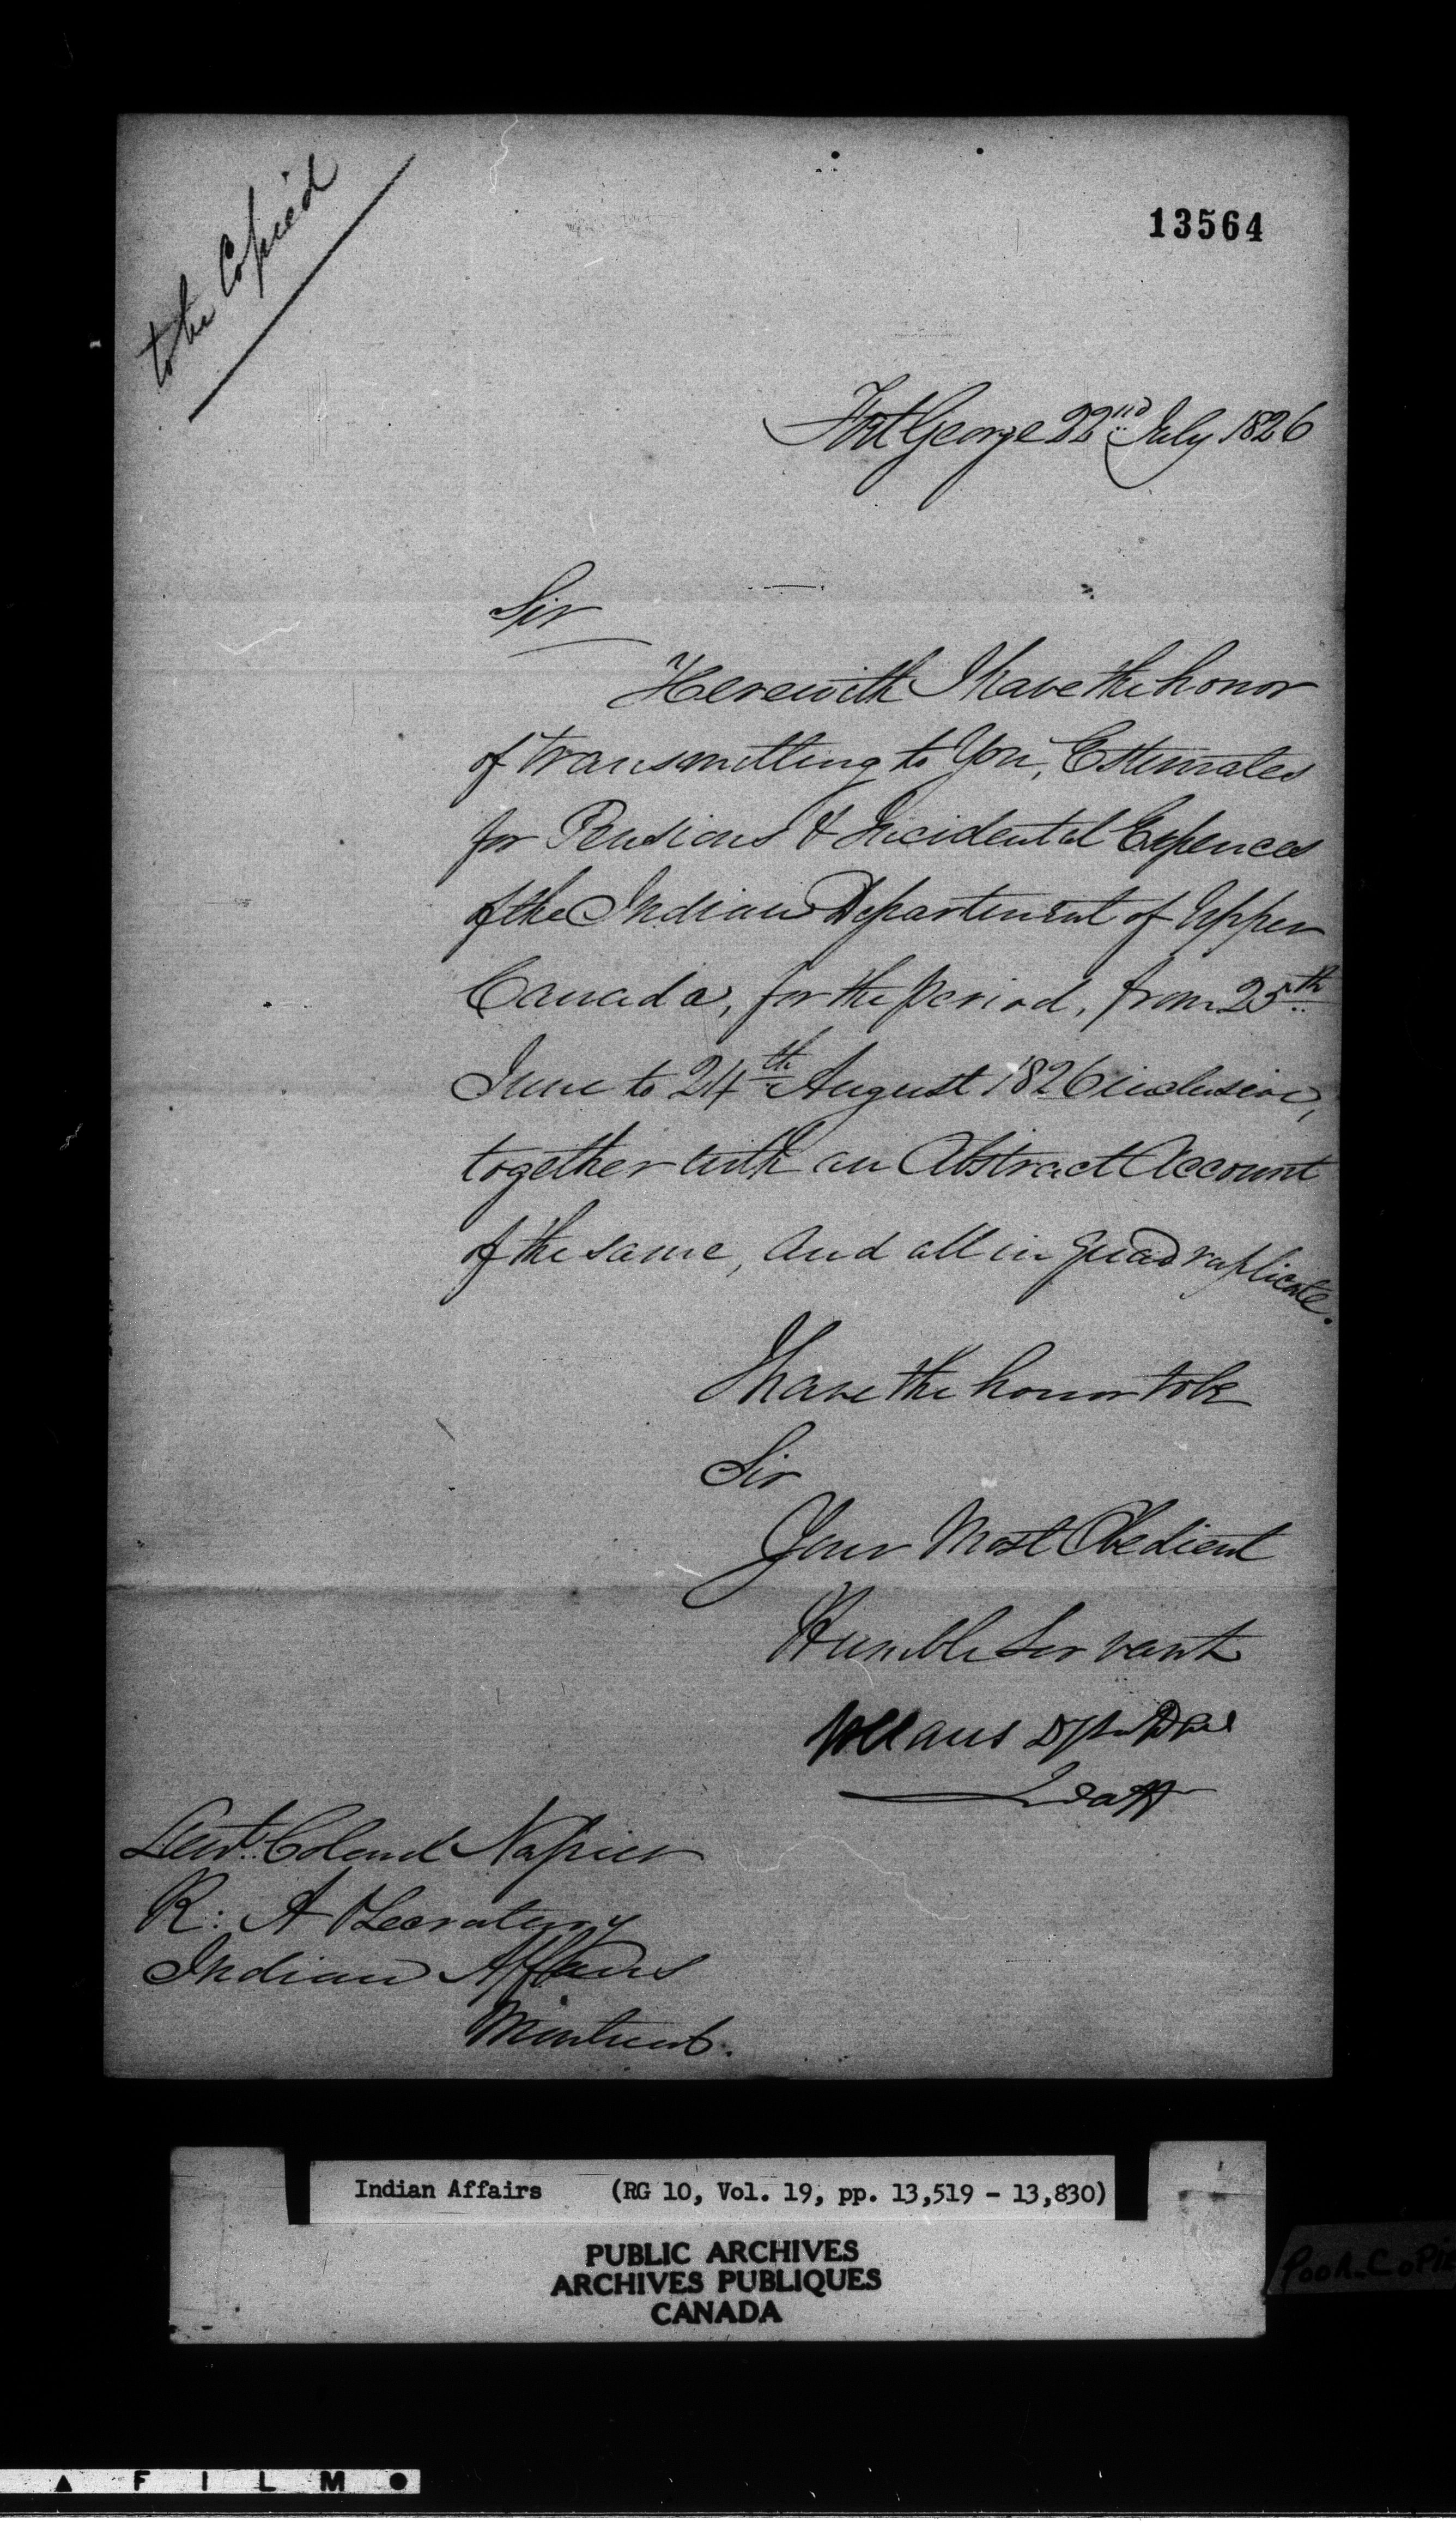 to be Copied
13564
Fort George 22nd July 1826
Sir
Herewith I have the honor
of transmitting to You, Estimates
for Pensions & Incidental Expences
of the Indian Department of Upper
Canada, for the period, from 25th
June to 24th August 1826 inclusive,
together with an Abstract Account
of the same, and all in quadruplicate.
I have the honor to be
Sir
Your Most Obedient
Humble Servant
Lieut. Colonel Napier
R: A Secretary
Indian Affairs
Montreal.
Indian Affairs (RG 10, Vol. 19, pp. 13,519 - 13,830)
PUBLIC ARCHIVES
ARCHIVES PUBLIQUES
CANADA
FILM